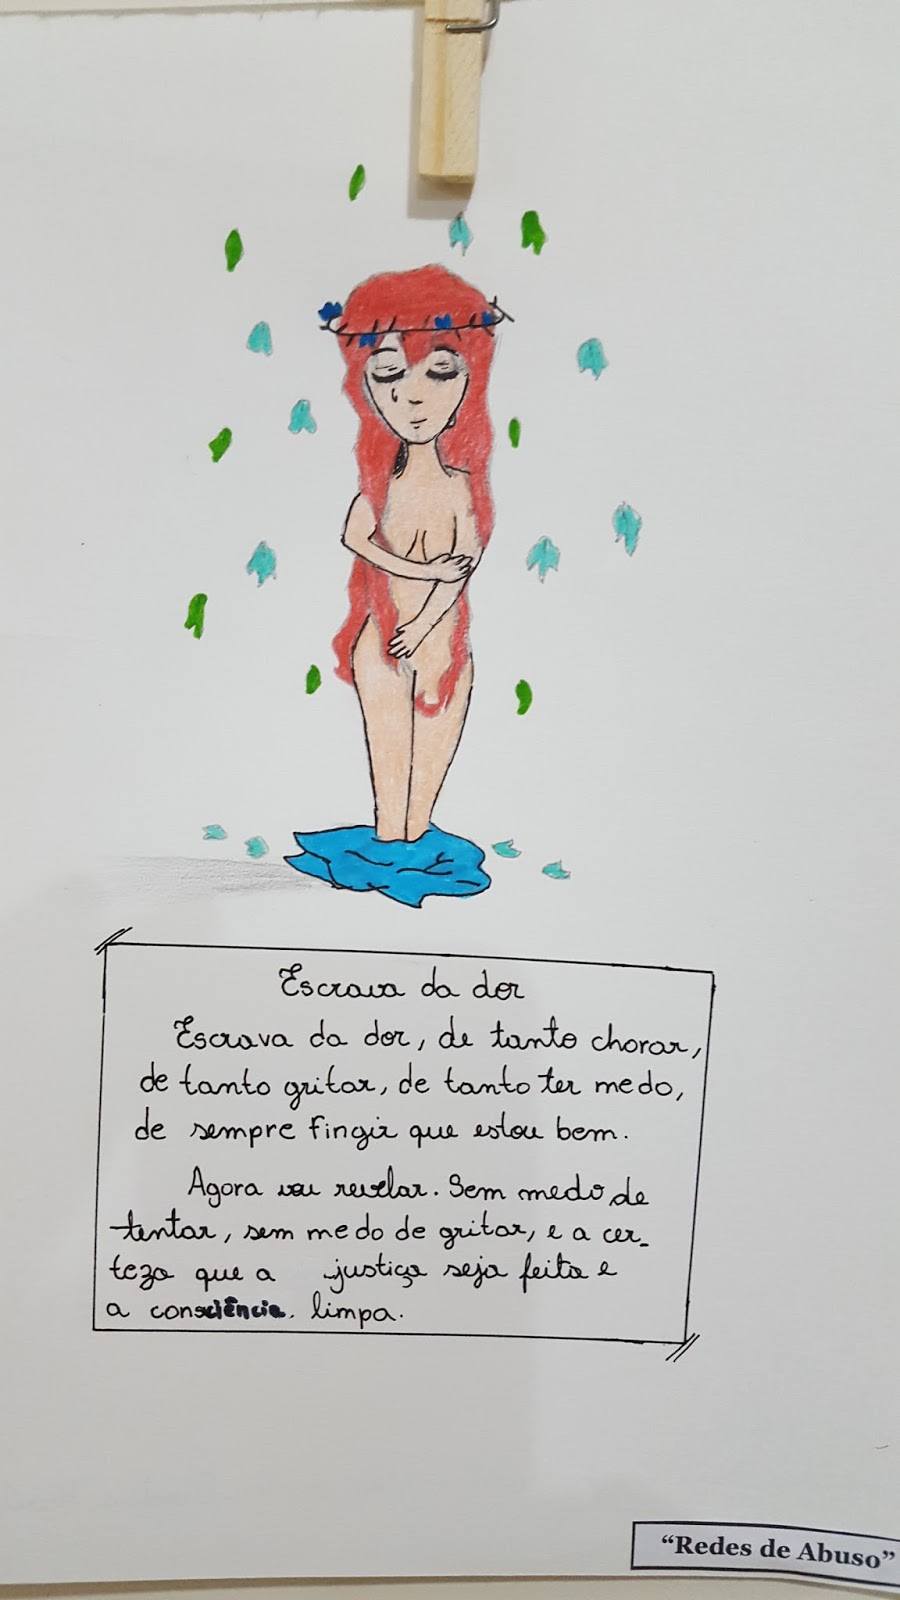 Escrava da dor
Escrava da dor, de tanto chorar,
de tanto gritar, de tanto ter medo,
de sempre fingir que estou bem.
Agora vou revelar. Sem medo de
tentar, sem medo de gritar, e a cer-
teza que a justiça seja feita e
a consciência. limpa.
"Redes de Abuso"